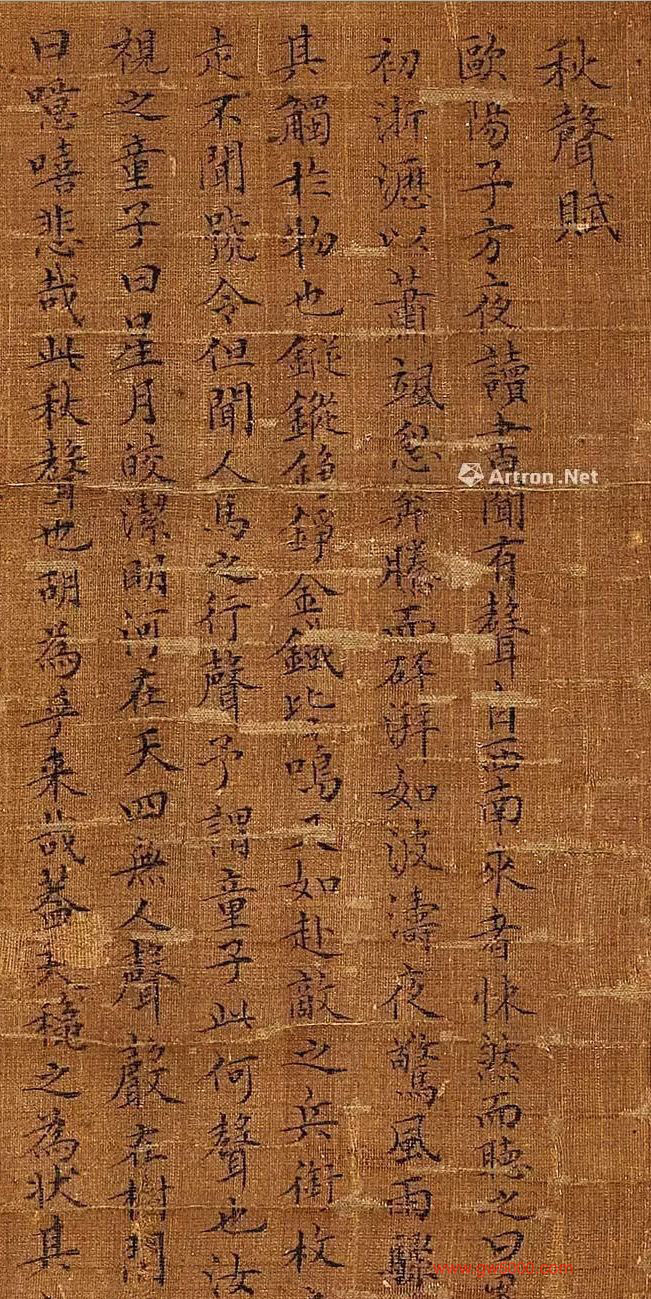 秋聲賦
歐陽子方夜讀書聞有聲自西南來者悚然而聽之曰
初淅瀝以蕭颯忽奔騰而砰湃如波濤夜驚風雨驟
其觸於物也鏦鏦錚錚金鐵皆鳴又如赴敵之兵銜枚
走不聞號令但聞人馬之行聲予謂童子此何聲也汝
視之童子曰星月皎潔明河在天四無人聲嚴在樹間
曰噫嘻悲哉此秋聲也胡為乎來哉蓋夫穐之為狀其
Artron.Net